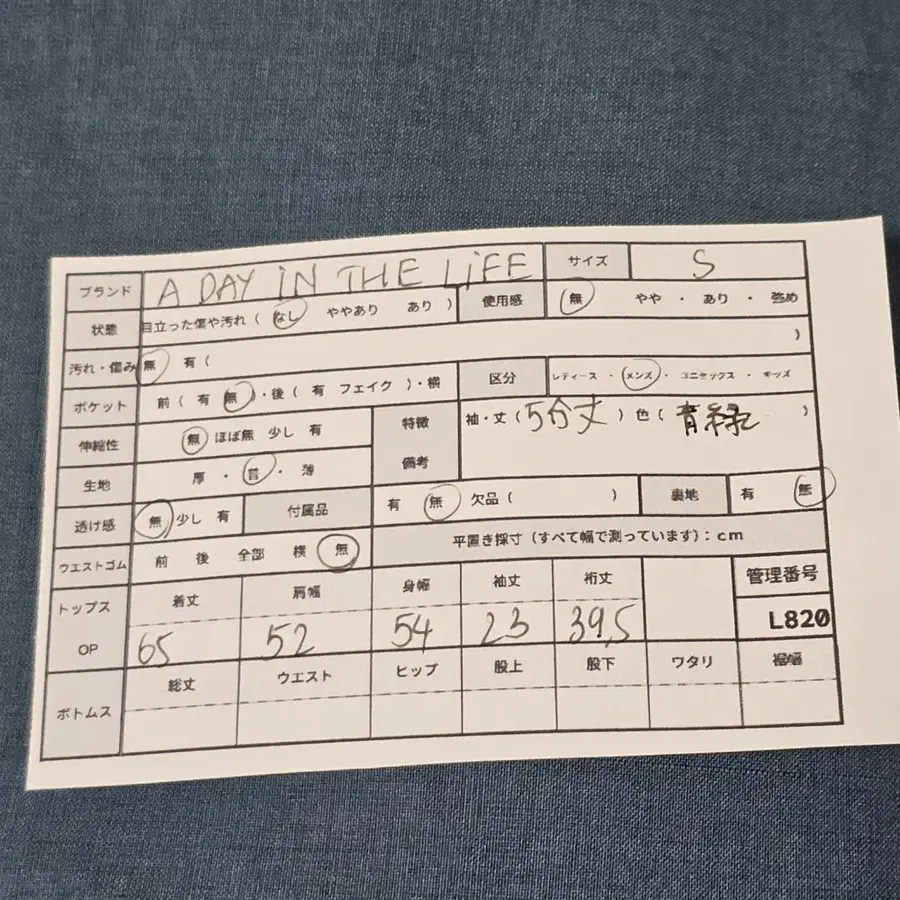 ブランド A DAY IN THE LIFE サイズ S
状態 目立った傷や汚れ ( なし ややあり あり ) 使用感 無 やや ・ あり ・ 強め
汚れ・傷み 無 有 ( )
ポケット 前 ( 有 無 )・後 ( 有 フェイク )・横 区分 レディース ・ メンズ ・ ユニセックス ・ キッズ
伸縮性 無 ほぼ無 少し 有 特徴 備考 袖・丈 ( 5分丈 ) 色 ( 青緑 )
生地 厚 ・ 普 ・ 薄
透け感 無 少し 有 付属品 有 無 欠品 ( ) 裏地 有 無
ウエストゴム 前 後 全部 横 無 平置き採寸 (すべて幅で測っています) : cm
トップス OP 着丈 肩幅 身幅 袖丈 裄丈 管理番号
65 52 54 23 39,5 L820
ボトムス 総丈 ウエスト ヒップ 股上 股下 ワタリ 裾幅